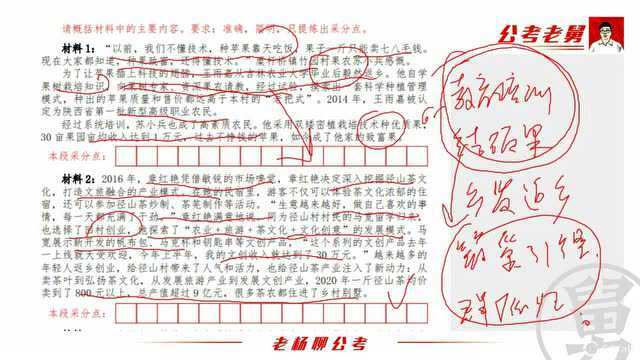 请概括材料中的主要内容。要求：准确，简明，只提炼出采分点。
公考老舅
材料1："以前，我们不懂技术，种苹果靠天吃饭，果子一斤只能卖七八毛钱。
现在大家都知道，种果脱贫，还得懂技术。"
为了让苹果插上科技的翅膀，王雨嘉从吉林农业大学毕业后毅然返乡。他自学
果树栽培知识，向果树专家、资深果农请教，经过试验，摸索出一套科学种植管理
模式，种出的苹果质量和售价都远高于本村的"老把式"。2014年，王雨嘉被认
定为陕西省第一批新型高级职业农民。
经过系统培训，苏小兵也成了高素质农民。他采用双矮密植栽培技术种优质果，
30亩果园亩均收入达到1万元，过去不挣钱的苹果，如今成了他家的致富果。
本段采分点：
材料2：2016年，章红艳凭借敏锐的市场嗅觉，章红艳决定深入挖掘径山茶文
化，打造文旅融合的产业模式。在她的民宿里，游客不仅可以体验茶文化浓郁的住
宿，还可以参加径山茶炒制、茶筅制作等活动。"生意越来越好，做自己喜欢的事
情，每一天都充满了干劲。"章红艳满意地说。同为径山村村民的马宽留学归来，
也选择了回村创业，她探索了"农业＋旅游＋茶文化＋文化创意"的发展模式。马
宽展示新开发的帆布包、马克杯和钥匙串等文创产品，"这个系列的文创产品去年
一上线就大受欢迎，今年上半年，我的文创收入就达到了30万元。"越来越多的
年轻人返乡创业，给径山村带来了人气和活力，也给径山茶产业注入了新动力：从
卖茶叶到弘扬茶文化，从发展旅游产业到发展文创产业，2020年一斤径山茶均价
卖到了800元以上，总产值超过9亿元，很多茶农都住进了乡村别墅。
本段采分点：
教育培训
结硕果
乡贤返乡
筑巢引凤
老杨聊公考